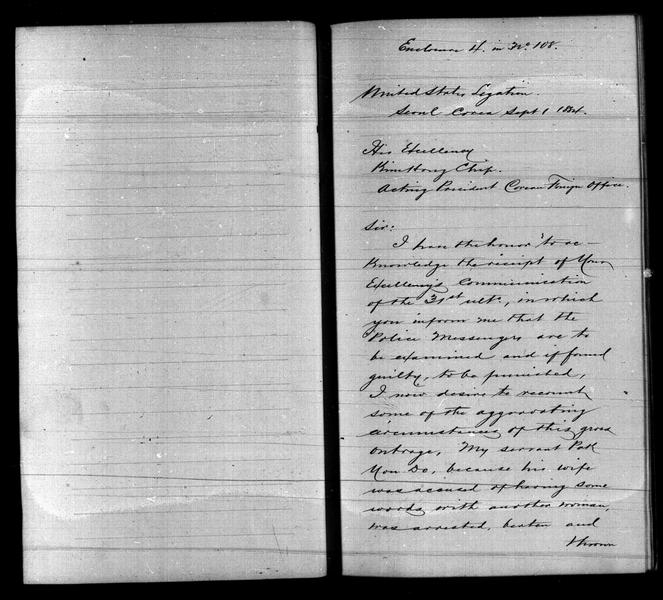 Enclosure 4. in No. 108.
United States Legation.
Seoul Corea Sept 1 1884.
His Excellency
Kim Hong Chip.
Acting President Corean Foreign Office.
Sir:
I have the honor to ac-
knowledge the receipt of Your
Excellency's Communication
of the 31st ult., in which
you inform me that the
Police Messengers are to
be examined and if found
guilty, to be punished,
I now desire to recount
some of the aggravating
circumstances of this gross
outrage, My servant Pak
Yon Do, because his wife
was accused of having some
words with another woman,
was arrested, beaten and
thrown